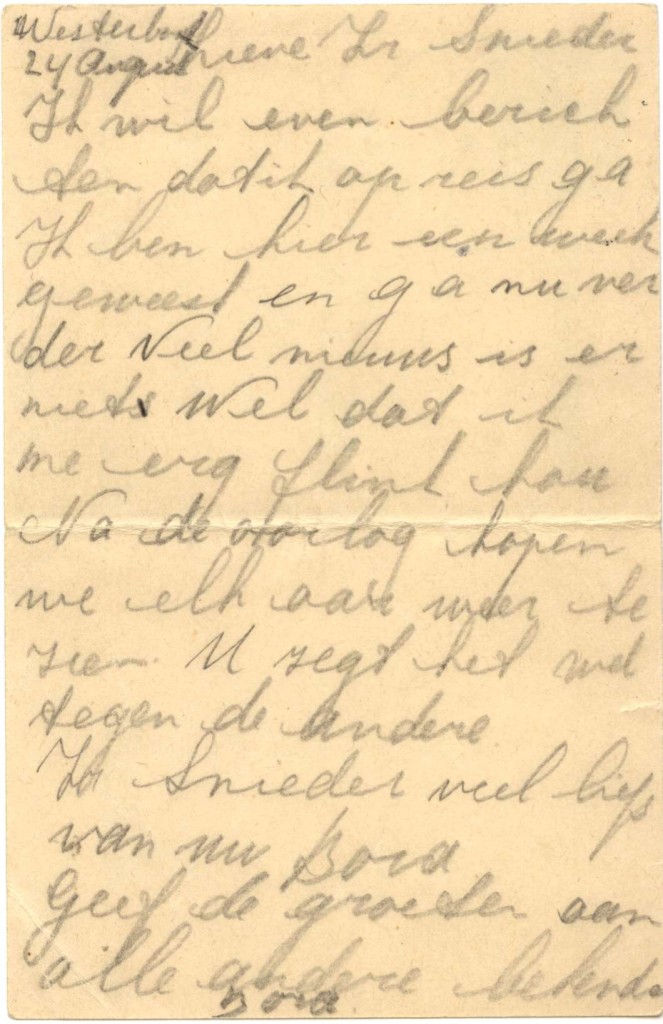 Westerbork
24 August
Lieve Zr Snieder
Ik wil even berich
ten dat ik op reis ga
Ik ben hier een week
geweest en ga nu ver
der Veel nieuws is er
niets Wel dat ik
me erg flink hou
Na de oorlog hopen
we elk aar weer te
zien. U zegt het wel
tegen de andere
Zr Snieder veel liefs
van uw Dora
Geef de groeten aan
alle andere bekende
Dora